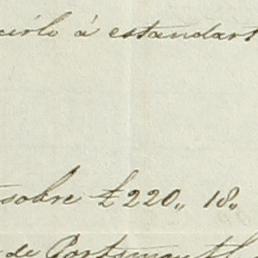 á estandart
sobre £220,, 18,,
de Portsmouth